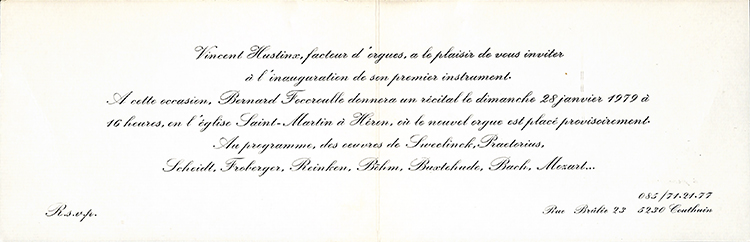 Vincent Hustinx, facteur d'orgues, a le plaisir de vous inviter
à l'inauguration de son premier instrument.
A cette occasion, Bernard Foccroulle donnera un récital le dimanche 28 janvier 1979 à
16 heures, en l'église Saint-Martin à Héron, où le nouvel orgue est placé provisoirement.
Au programme, des oeuvres de Sweelinck, Praetorius,
Scheidt, Froberger, Reinken, Böhm, Buxtehude, Bach, Mozart...
085/71.21.77
R.s.v.p. Rue Brûlée 23 5230 Couthuin